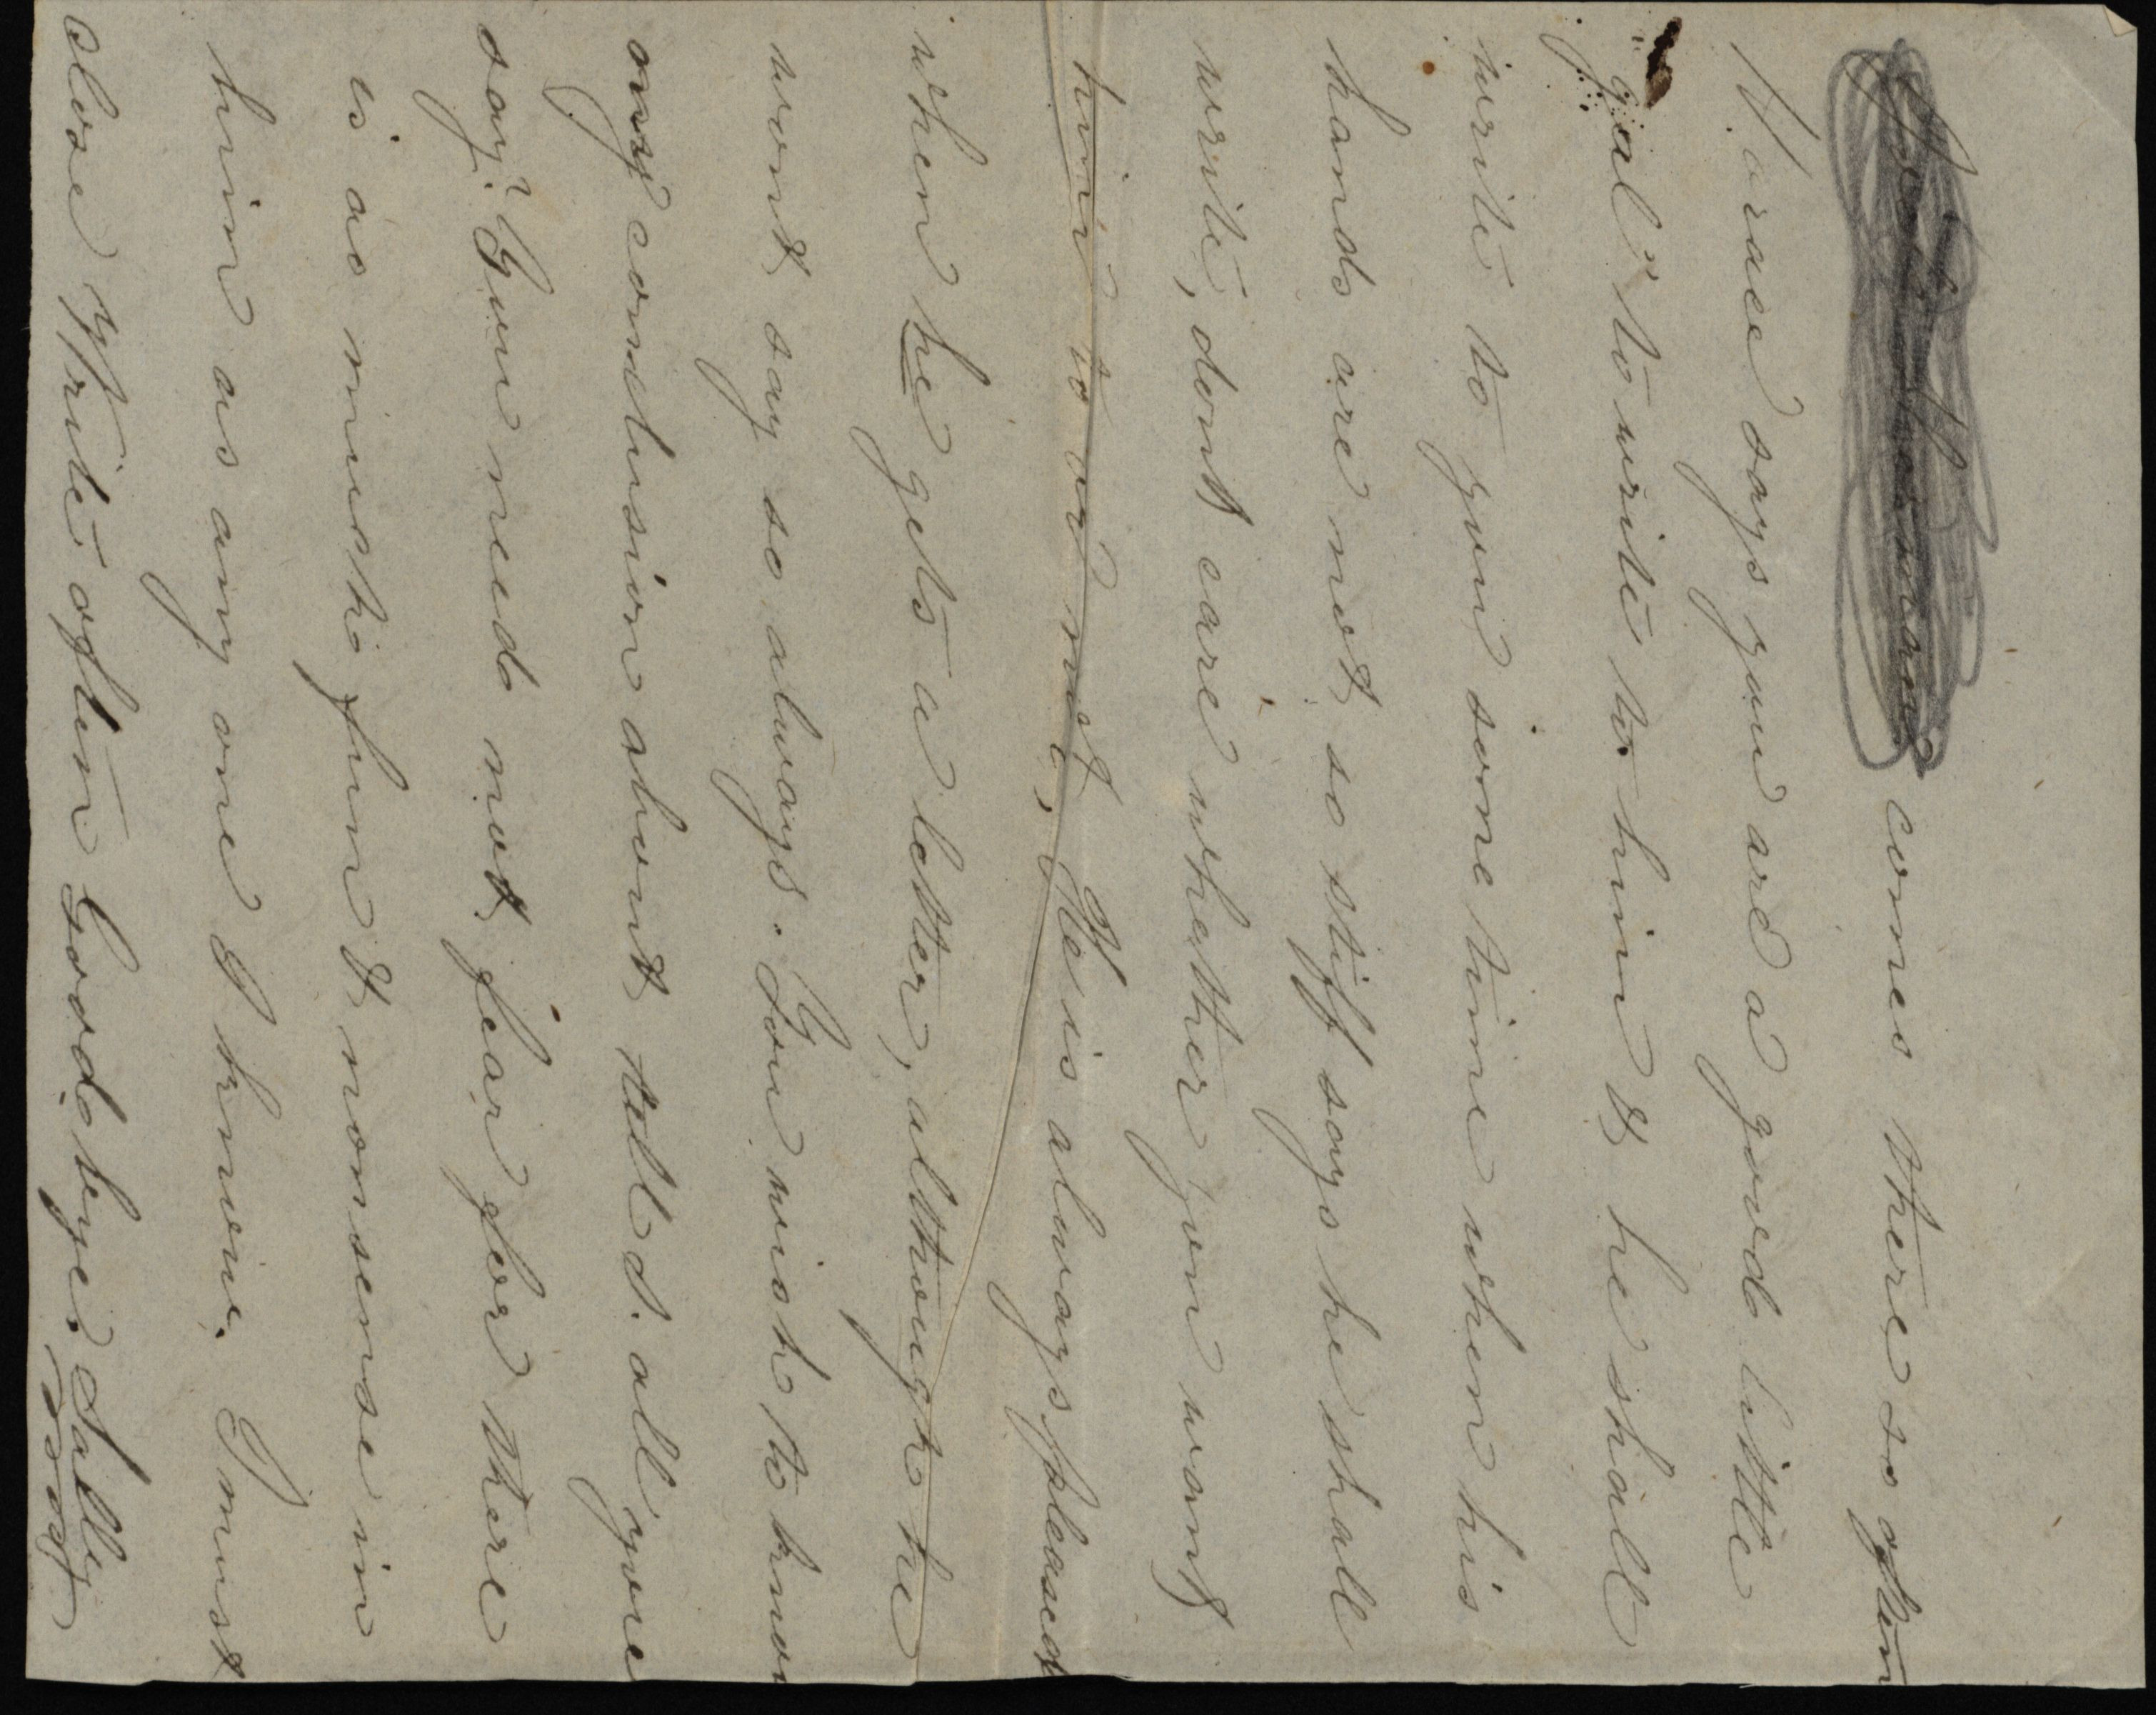 comes there so often
Horace says you are a good little
gal" to write to him & he shall
write to you some time when his
hands are not so stiff says he shall
write, dont care whether you want
him to or not, He is always pleased
when he gets a letter, although he
wont say so always. You wish to know
my conclusion about tall d. all youre
say. You need not fear for there
is as much fun & nonsense in
him as any one I know. I must
close Write often Good bye. Sally